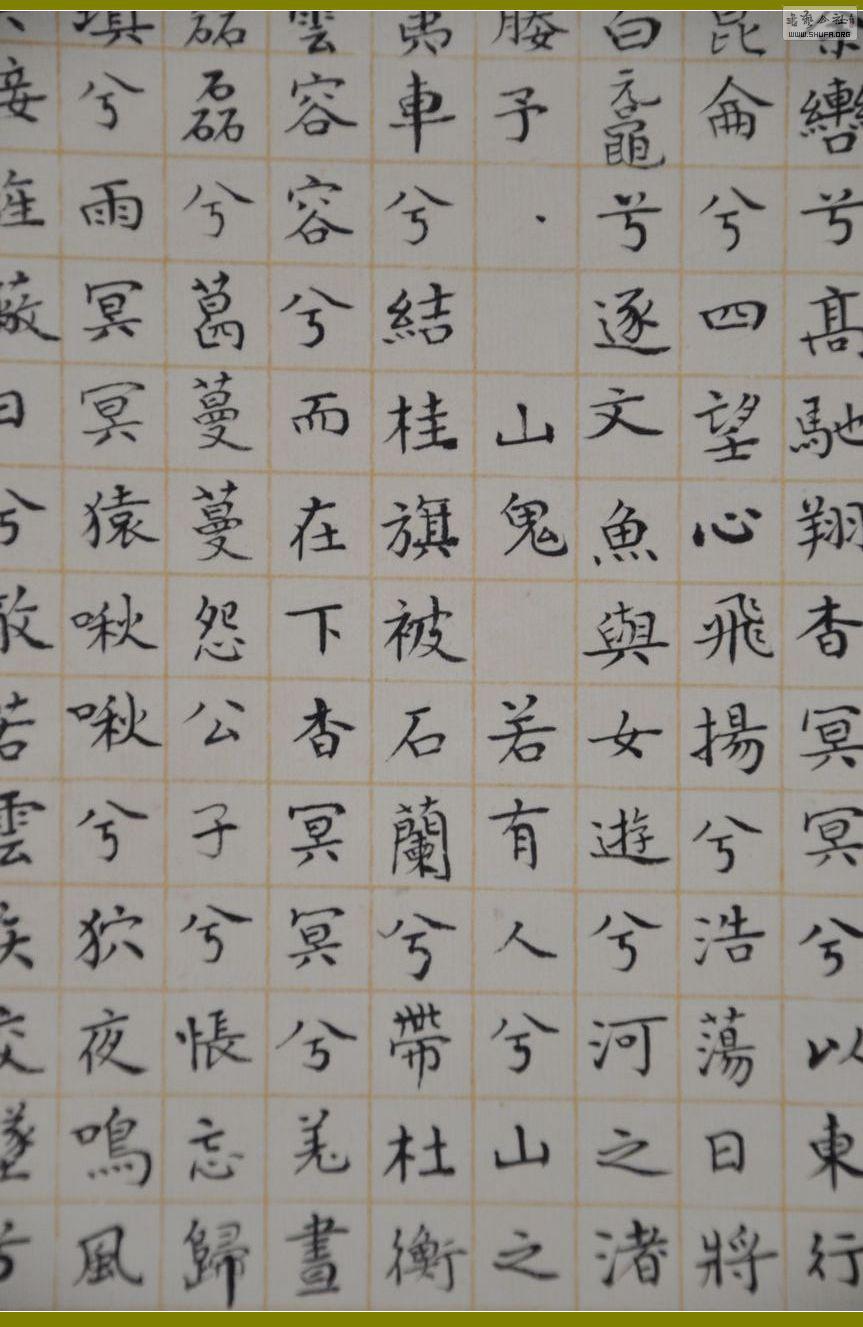 書藝公社
WWW.SHUFA.ORG
轡兮高馳翔杳冥冥兮以東行
昆侖兮四望心飛揚兮浩蕩日將
白黿兮逐文魚與女遊兮河之渚
媵予·　山鬼　若有人兮山之
夷車兮結桂旗被石蘭兮帶杜衡
雲容容兮而在下杳冥冥兮羌晝
磊磊兮葛蔓蔓怨公子兮悵忘歸
填兮雨冥冥猿啾啾兮狖夜鳴風
接旌蔽日兮敵若雲矢交墜兮